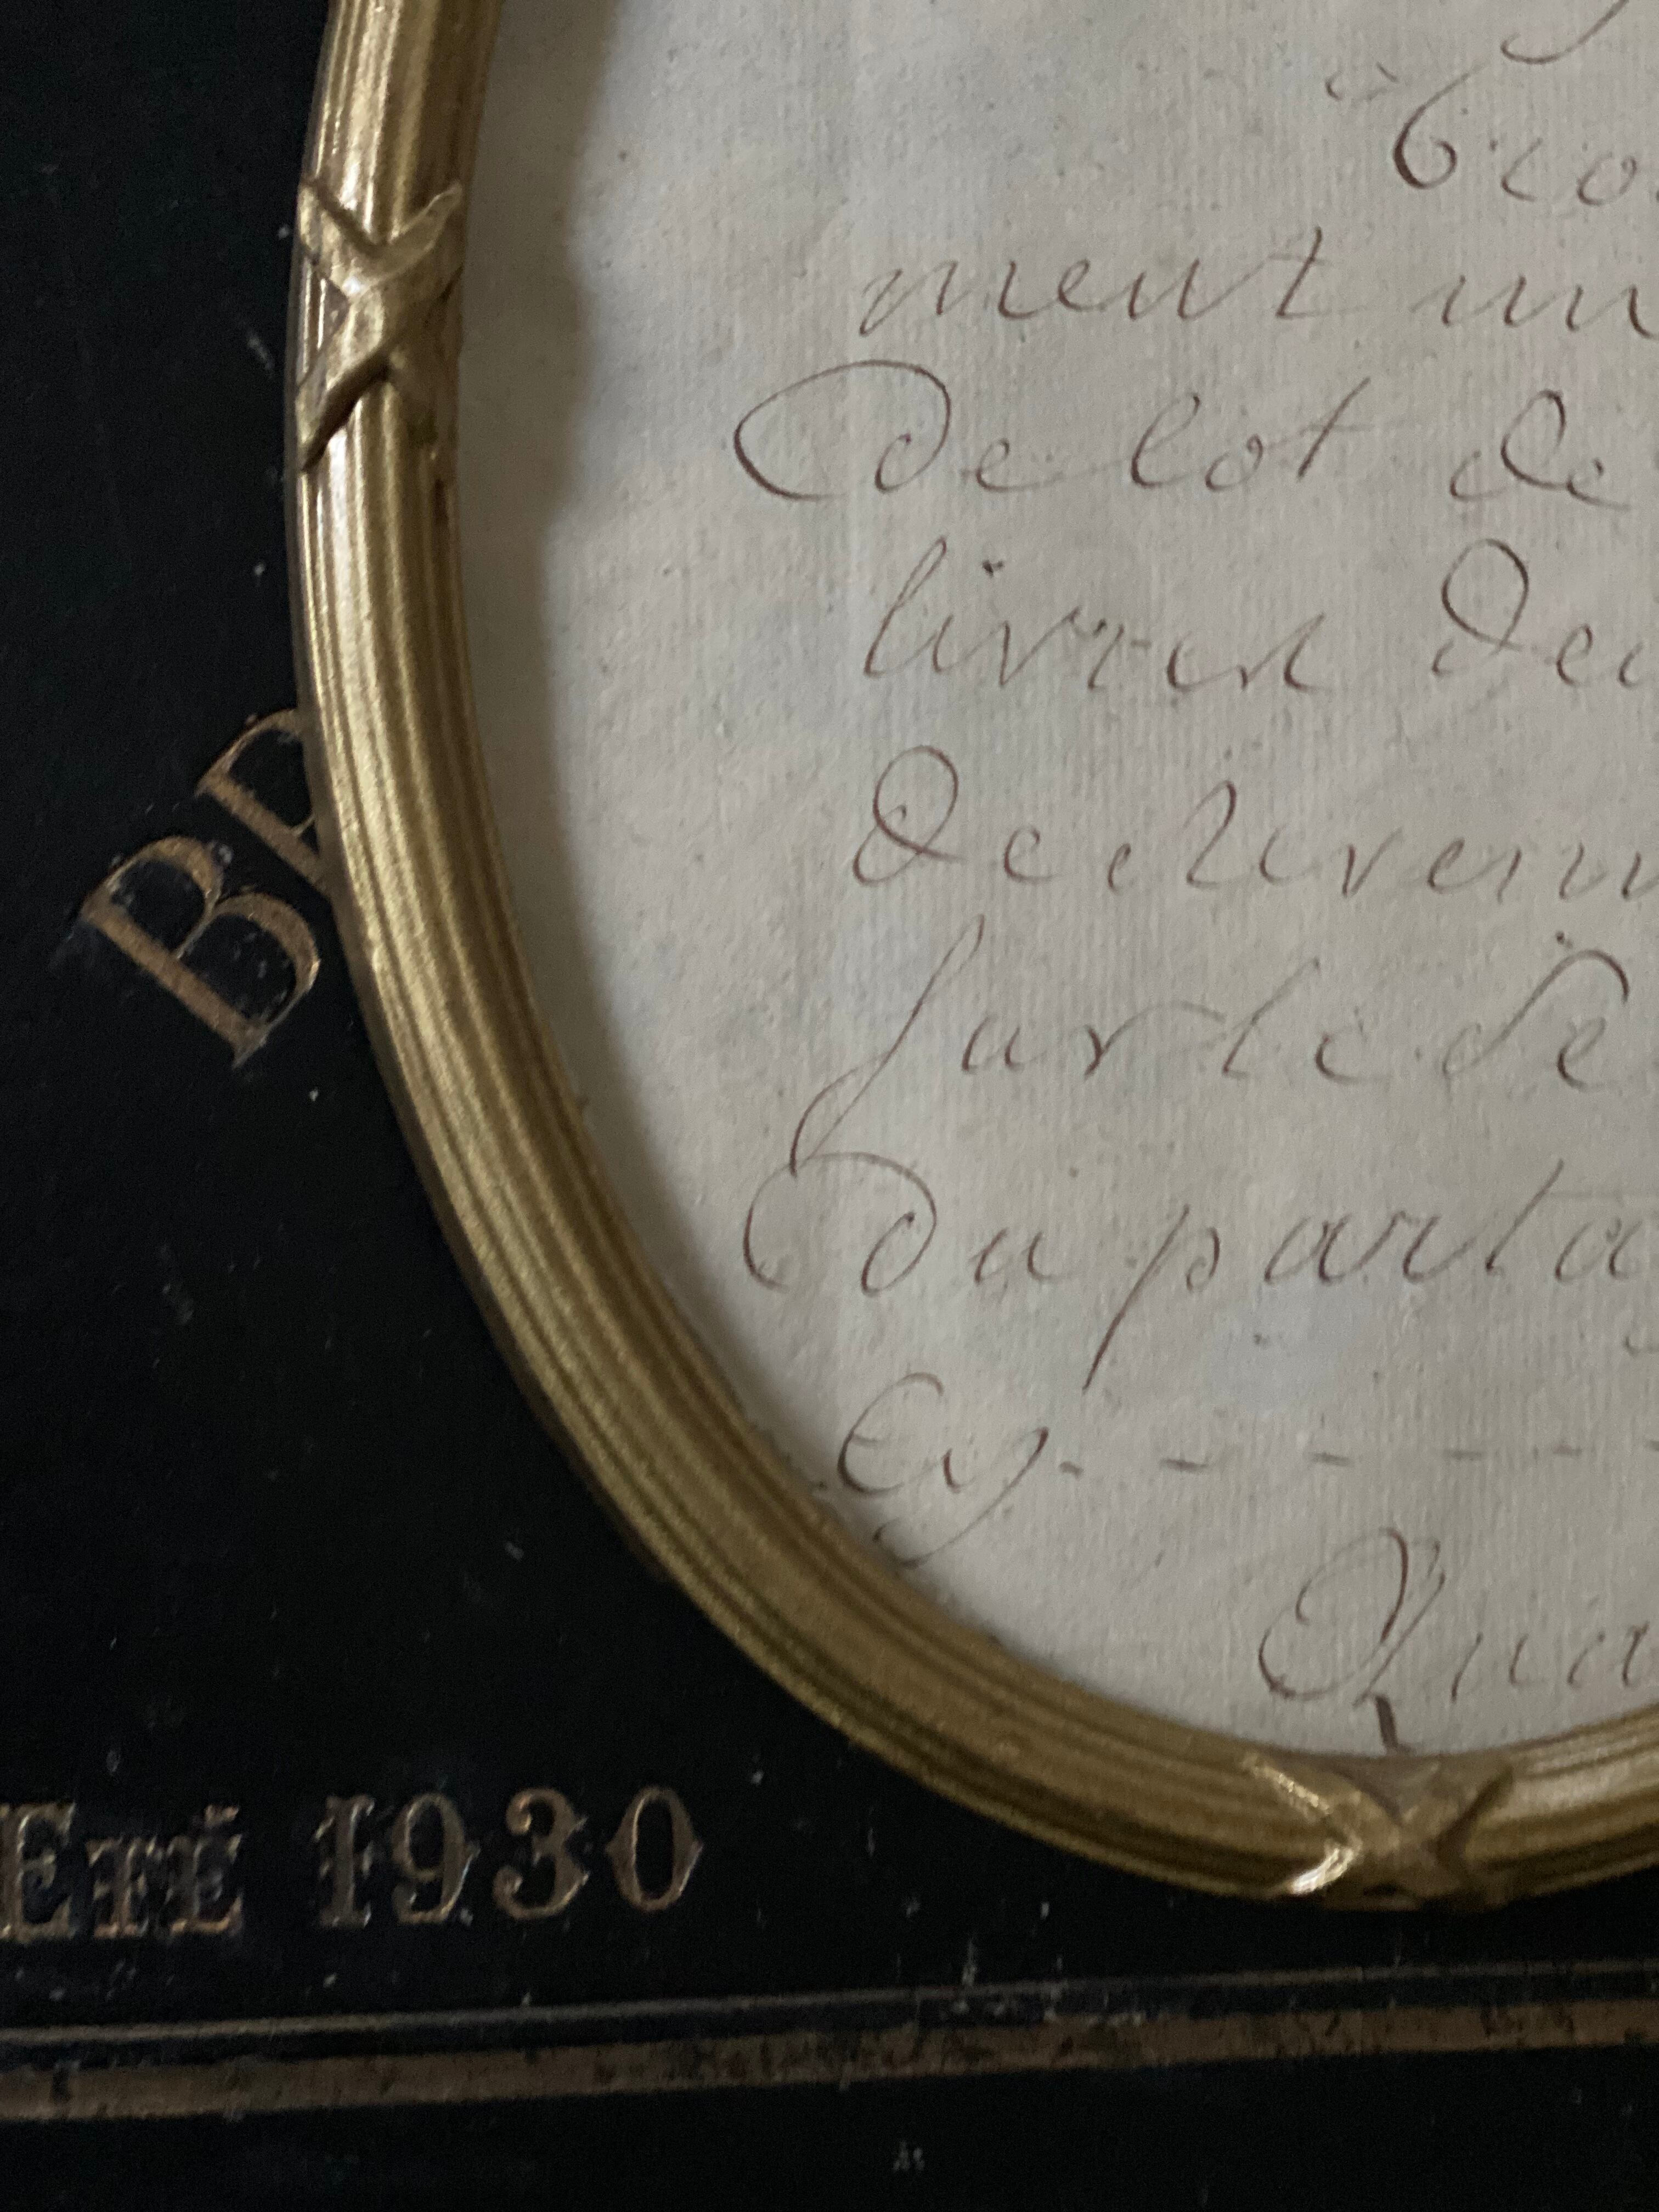 ment un
De lot de
livres de
de reven
Sur le de
Du parta
Cy - - - - -
Qua
BE
ETÉ 1930